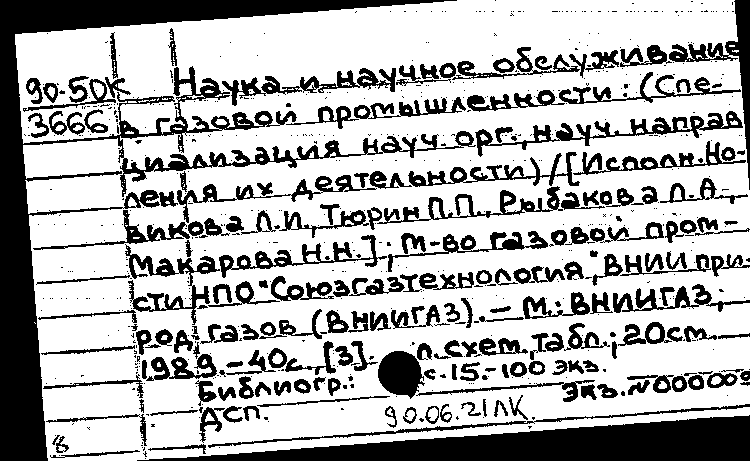 90-50К Наука и научное обслуживание
3666 в газовой промышленности: (Спе-
циализация науч. орг., науч. направ
ления их деятельности) / [Исполн. Но-
викова Л.И., Тюрин П.П., Рыбакова Л.А.,
Макарова Н.Н.]; М-во газовой пром-
сти НПО "Союзгазтехнология", ВНИИ при-
род. газов (ВНИИГАЗ). – М.: ВНИИГАЗ;
1989. – 40с., [3]. л. схем, табл.; 20см.
Библиогр.: с. 15. – 100 экз.
ДСП. Экз. №000003
90.06.21ЛК.
8